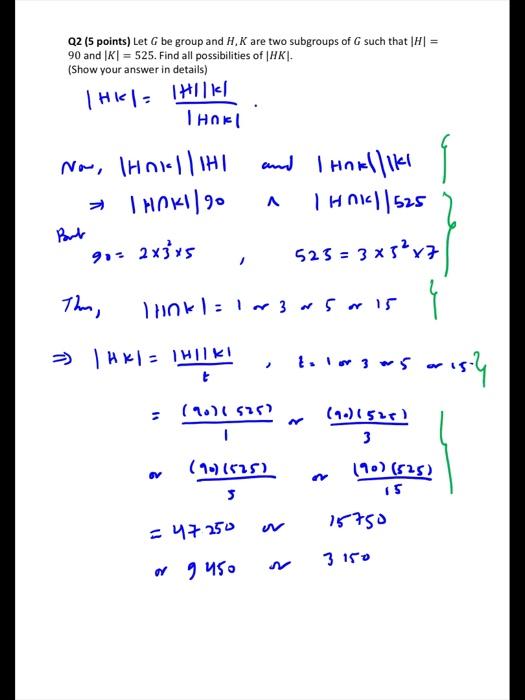 Q2 (5 points) Let G be group and H, K are two subgroups of G such that |H| =
90 and |K| = 525. Find all possibilities of |HK|.
(Show your answer in details)
|HK| = |H||K| / |H∩K| .
Now, |H∩K| | |H| and |H∩K| | |K|
⇒ |H∩K| | 90 ∧ |H∩K| | 525
But
90 = 2×3²×5 , 525 = 3×5²×7
Thus, |H∩K| = 1 or 3 or 5 or 15
⇒ |HK| = |H||K| / t , t = 1 or 3 or 5 or 15.
= (90)(525) / 1 or (90)(525) / 3
or (90)(525) / 5 or (90)(525) / 15
= 47250 or 15750
or 9450 or 3150